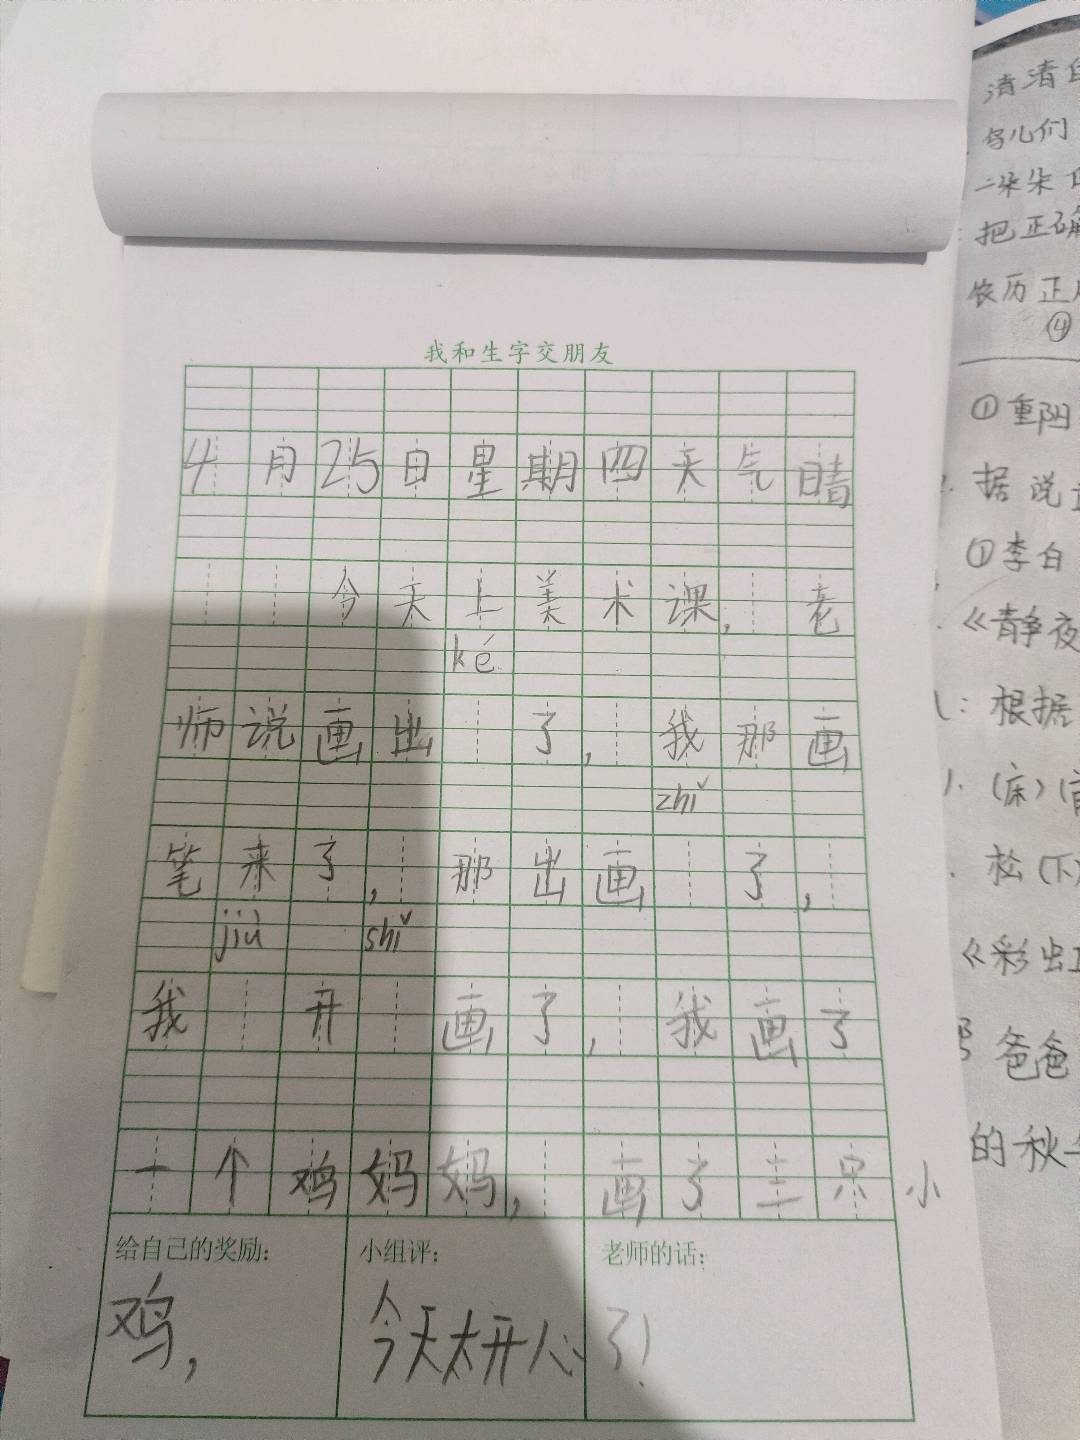 我和生字交朋友
4月25日星期四天气晴
今天上美术课,老
ké
师说画出 了,我那画
zhǐ
笔来了,那出画 了,
jiù shǐ
我 开 画了,我画了
一个鸡妈妈,画了三只小
给自己的奖励: 小组评: 老师的话:
鸡,今天太开心了!
清清
鸟儿们
一朵朵
把正确
农历正
④
①重阳
据说
①李白
《静夜
根据
(床)
松(下)
《彩出
爸爸
的秋